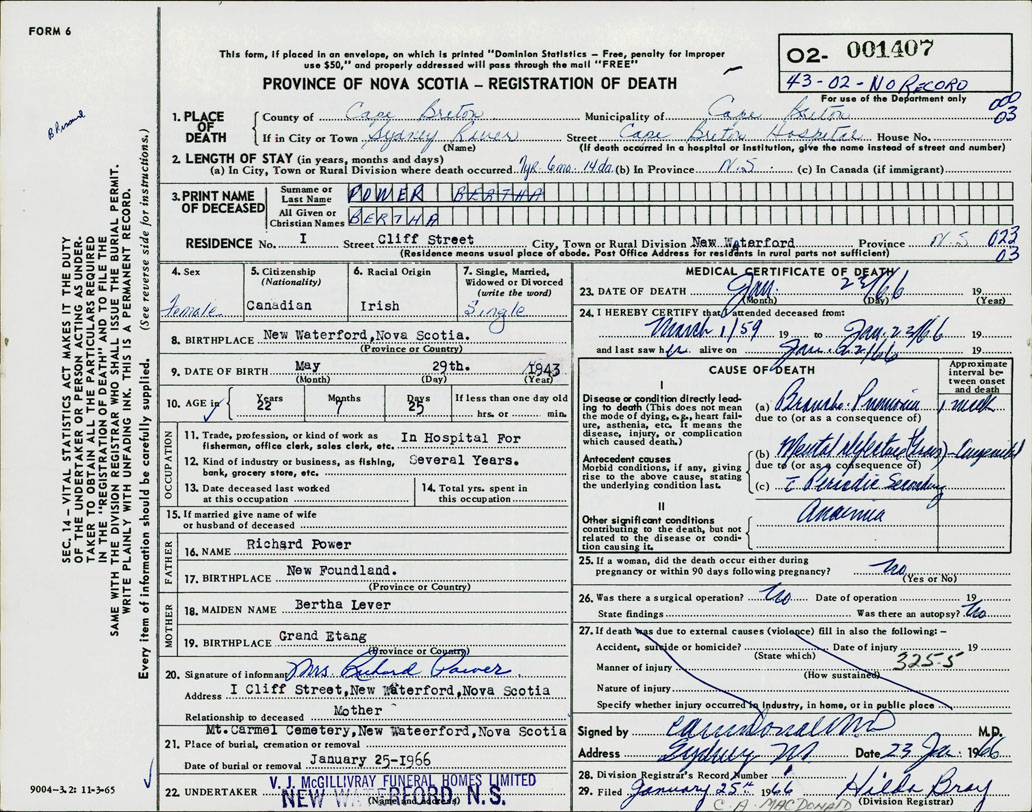 FORM 6
This form, if placed in an envelope, on which is printed "Dominion Statistics — Free, penalty for improper
use $50," and properly addressed will pass through the mail "FREE"
PROVINCE OF NOVA SCOTIA — REGISTRATION OF DEATH
O2- 001407
43-02-NO RECORD
For use of the Department only
000
03
1. PLACE OF DEATH
County of Cape Breton Municipality of Cape Breton
If in City or Town Sydney River Street Cape Breton Hospital House No.
(Name) (If death occurred in a hospital or Institution, give the name instead of street and number)
2. LENGTH OF STAY (in years, months and days)
(a) In City, Town or Rural Division where death occurred 7yr 6mo 14da (b) In Province N.S (c) In Canada (if immigrant)
3. PRINT NAME OF DECEASED
Surname or Last Name POWER BERTHA
All Given or Christian Names BERTHA
RESIDENCE No. I Street Cliff Street City, Town or Rural Division New Waterford Province N.S 023
(Residence means usual place of abode. Post Office Address for residents in rural parts not sufficient) 03
4. Sex
Female
5. Citizenship
(Nationality)
Canadian
6. Racial Origin
Irish
7. Single, Married,
Widowed or Divorced
(write the word)
Single
8. BIRTHPLACE New Waterford,Nova Scotia.
(Province or Country)
9. DATE OF BIRTH May 29th. 1943
(Month) (Day) (Year)
10. AGE in Years 22 Months 7 Days 25 If less than one day old
hrs. or min.
OCCUPATION
11. Trade, profession, or kind of work as In Hospital For
fisherman, office clerk, sales clerk, etc.
12. Kind of industry or business, as fishing, Several Years.
bank, grocery store, etc.
13. Date deceased last worked
at this occupation
14. Total yrs. spent in
this occupation
15. If married give name of wife
or husband of deceased
FATHER
16. NAME Richard Power
17. BIRTHPLACE New Foundland.
(Province or Country)
MOTHER
18. MAIDEN NAME Bertha Lever
19. BIRTHPLACE Grand Etang
(Province or Country)
20. Signature of informant Mrs. Richard Power
Address I Cliff Street,New Waterford,Nova Scotia
Relationship to deceased Mother
Mt.Carmel Cemetery,New Wateerford,Nova Scotia
21. Place of burial, cremation or removal
Date of burial or removal January 25-1966
22. UNDERTAKER V. J. McGILLIVRAY FUNERAL HOMES LIMITED
(Name and address)
NEW WATERFORD, N.S.
MEDICAL CERTIFICATE OF DEATH
23. DATE OF DEATH Jan. 23/66 19
(Month) (Day) (Year)
24. I HEREBY CERTIFY that I attended deceased from:
March 1/59 19 to Jan. 23/66 19
and last saw her alive on Jan. 22/66 19
CAUSE OF DEATH
Approximate interval between onset and death
I
Disease or condition directly leading to death (This does not mean the mode of dying, e.g., heart failure, asthenia, etc. It means the disease, injury, or complication which caused death.)
(a) Broncho-Pnemonia 1 week
due to (or as a consequence of)
Antecedent causes
Morbid conditions, if any, giving rise to the above cause, stating the underlying condition last.
(b) Mental defective - Congenital
due to (or as a consequence of)
(c) Periodic Secondary
II
Other significant conditions
contributing to the death, but not related to the disease or condition causing it.
Anaemia
25. If a woman, did the death occur either during
pregnancy or within 90 days following pregnancy? No
(Yes or No)
26. Was there a surgical operation? No Date of operation 19
State findings Was there an autopsy? No
27. If death was due to external causes (violence) fill in also the following: —
Accident, suicide or homicide? Date of injury 19
(State which) 3255
Manner of injury
(How sustained)
Nature of injury
Specify whether injury occurred in Industry, in home, or in public place
Signed by M.D.
Address Sydney NS Date 23 Jan. 1966
28. Division Registrar's Record Number 6
29. Filed January 25th 1966 Hilda Bray
(Division Registrar)
C. A. MACDONALD
SEC. 14 — VITAL STATISTICS ACT MAKES IT THE DUTY
OF THE UNDERTAKER OR PERSON ACTING AS UNDER-
TAKER TO OBTAIN ALL THE PARTICULARS REQUIRED
IN THE "REGISTRATION OF DEATH" AND TO FILE THE
SAME WITH THE DIVISION REGISTRAR WHO SHALL ISSUE THE BURIAL PERMIT.
WRITE PLAINLY WITH UNFADING INK. THIS IS A PERMANENT RECORD.
Every item of information should be carefully supplied. (See reverse side for instructions.)
9004—3.2: 11-3-65